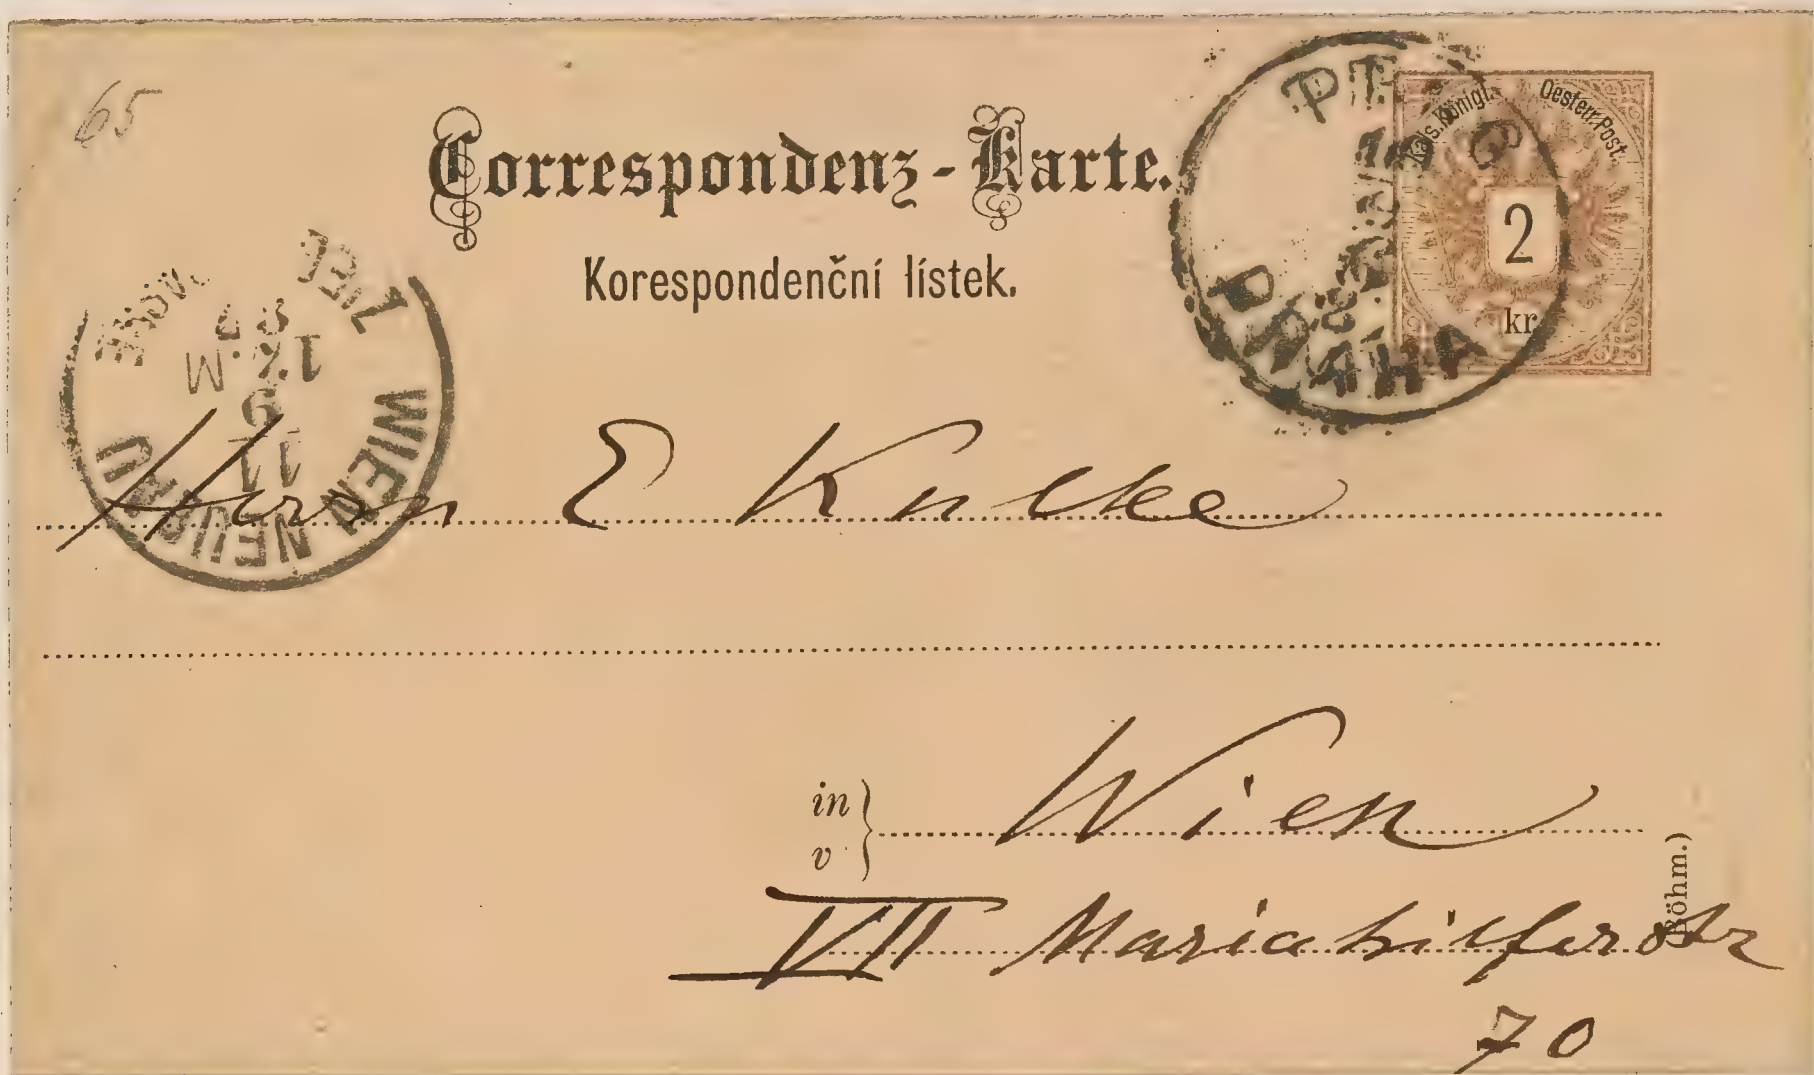 65
Correspondenz-Karte.
Korespondenční lístek.
Kais. Königl. Oesterr. Post.
2
kr
PRAHA
WIEN NEUBAU
11
9
M
Herrn E Kulke
in
v
Wien
VII Mariahilferstr
70
Böhm.)